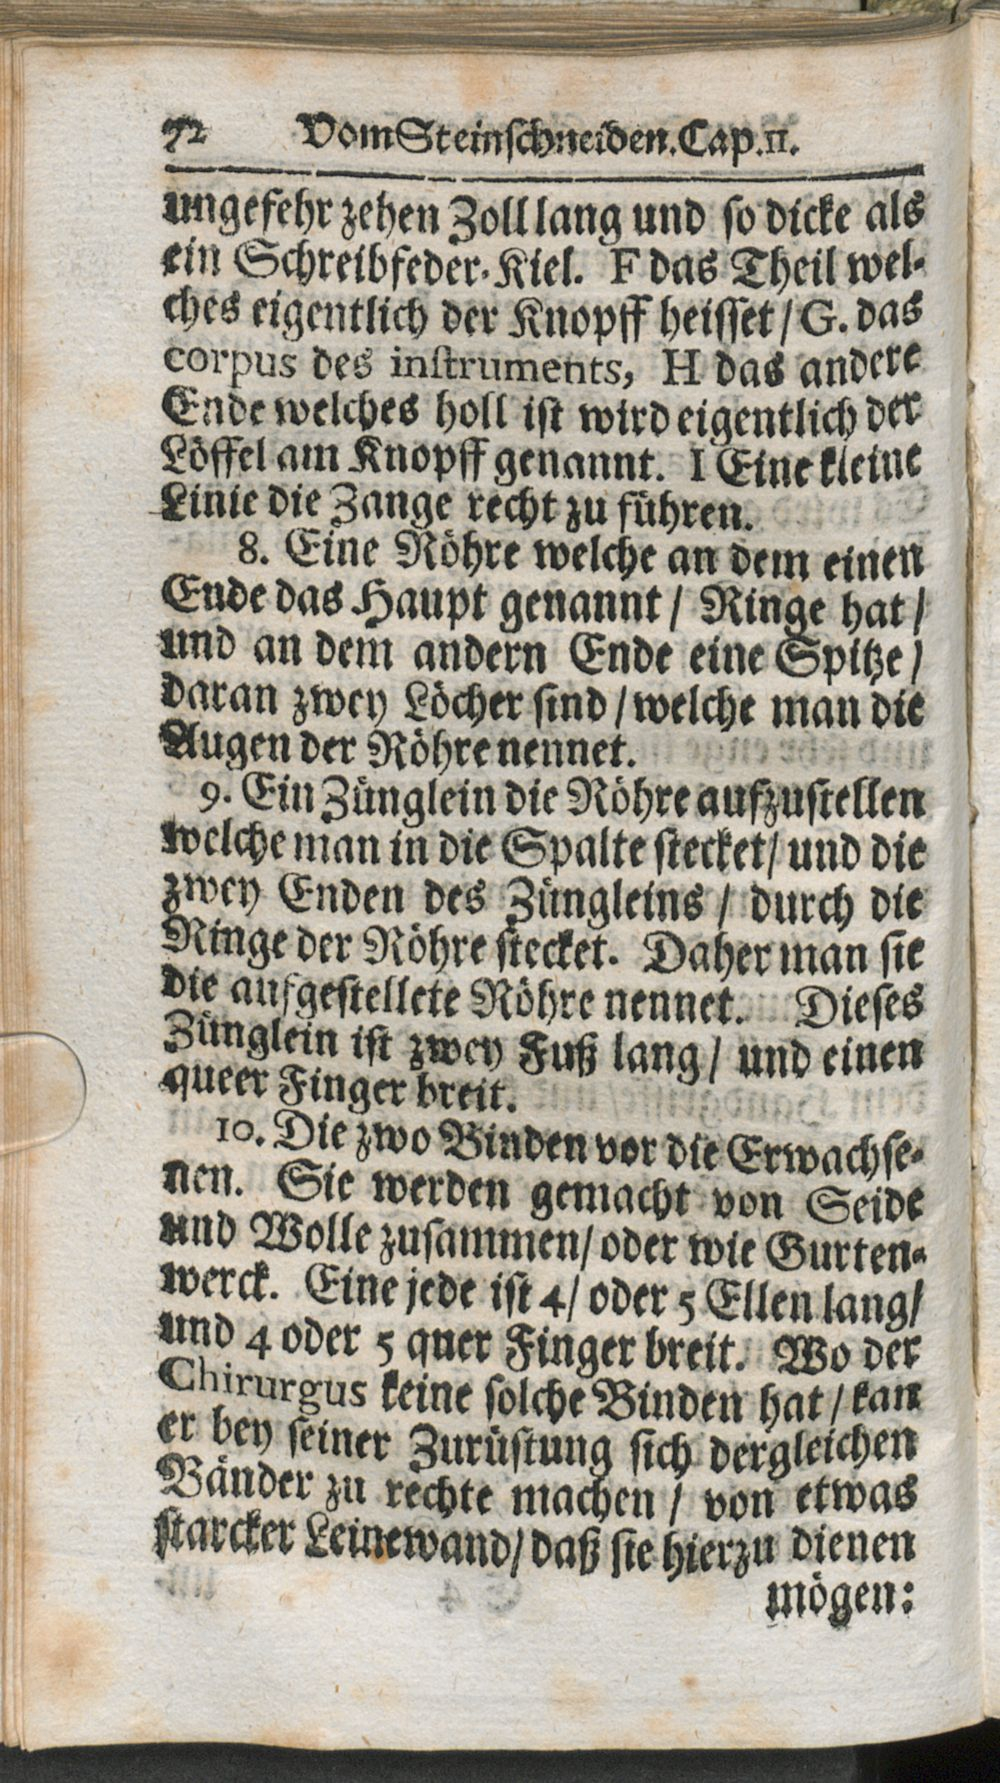 72 Vom Steinschneiden. Cap. II.
ungefehr zehen Zoll lang und so dicke als
ein Schreibfeder-Kiel. F das Theil wel-
ches eigentlich der Knopff heisset / G. das
corpus des instruments, H das andere
Ende welches holl ist wird eigentlich der
Löffel am Knopff genannt. I Eine kleine
Linie die Zange recht zu führen.
8. Eine Röhre welche an dem einen
Ende das Haupt genannt / Ringe hat /
und an dem andern Ende eine Spitze /
daran zwey Löcher sind / welche man die
Augen der Röhre nennet.
9. Ein Zünglein die Röhre aufzustellen
welche man in die Spalte stecket / und die
zwey Enden des Züngleins / durch die
Ringe der Röhre stecket. Daher man sie
die aufgestellete Röhre nennet. Dieses
Zünglein ist zwey Fuß lang / und einen
queer Finger breit.
10. Die zwo Binden vor die Erwachse-
nen. Sie werden gemacht von Seide
und Wolle zusammen / oder wie Gurten-
werck. Eine jede ist 4 / oder 5 Ellen lang /
und 4 oder 5 quer Finger breit. Wo der
Chirurgus keine solche Binden hat / kan
er bey seiner Zurüstung sich dergleichen
Bänder zu rechte machen / von etwas
starcker Leinewand / daß sie hierzu dienen
mögen: